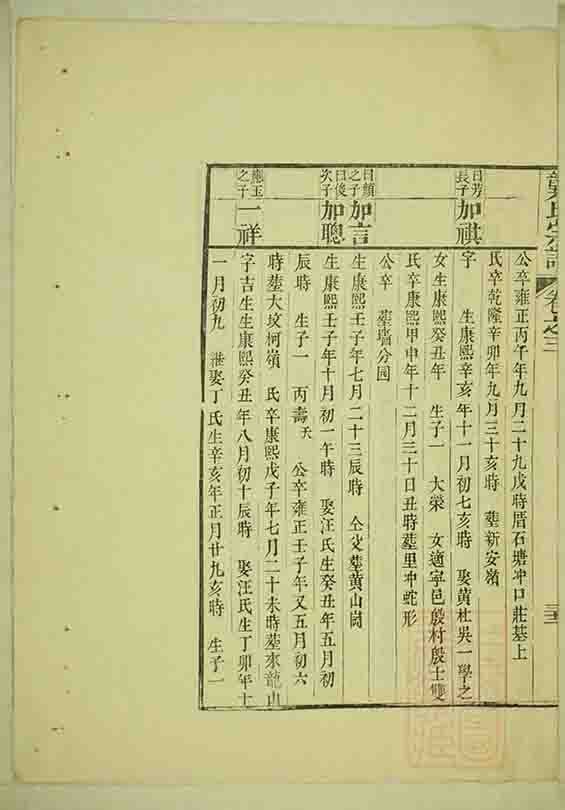 氏宗譜
卷之三
公卒雍正丙午年九月二十九戌時厝石塘冲口莊基上
氏卒乾隆辛卯年九月三十亥時 塟新安嶺
曰芳
長子
加祺
字 生康熙辛亥年十一月初七亥時 娶黃杜吳一學之
女生康熙癸丑年 生子一 大榮 女適寧邑殷村殷士雙
氏卒康熙甲申年十二月三十日丑時塟里冲蛇形
公卒 塟墻分园
曰顏
之子
加言
生康熙壬子年七月二十三辰時 仝父塟黃山崗
曰俊
次子
加聰
生康熙壬子年十月初一午時 娶汪氏生癸丑年五月初
辰時 生子一 丙壽夭 公卒雍正壬子年又五月初六
時塟大坟坷嶺 氏卒康熙戊子年七月二十未時塟來龍山
應玉
之子
一祥
字吉生生康熙癸丑年八月初十辰時 娶汪氏生丁卯年十
一月初九 娶丁氏生辛亥年正月廿九亥時 生子一